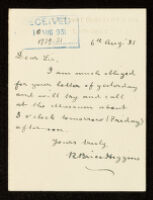 RECEIVED
10 AUG 1931
6th Aug. 31
Dear Sir,
I am much obliged
for your letter of yesterday
and will try and call
at the Museum about
3 o'clock tomorrow (Friday)
afternoon.
Yours truly,
R. Brice Higgins